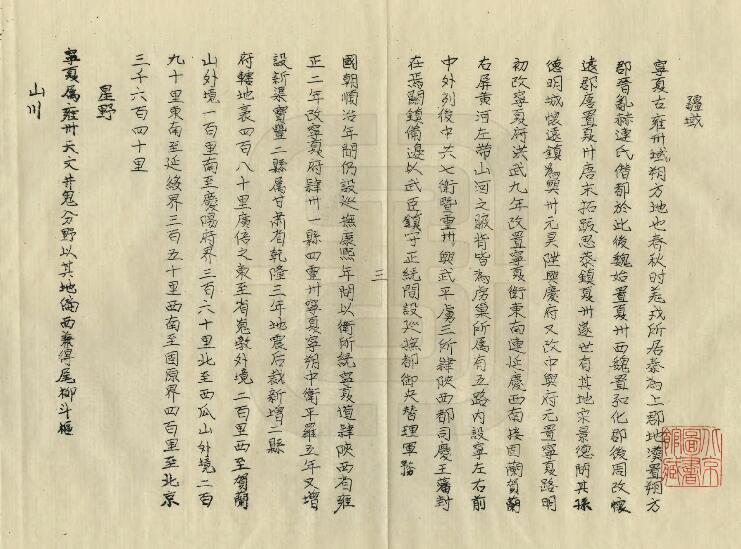 疆域
寧夏古雍州域朔方地也春秋時羌戎所居秦為上郡地漢置朔方
郡晉亂赫連氏僭都於此後魏始置夏州西魏置弘化郡後周改懷
遠郡唐置夏州唐末拓跋思恭鎮夏州遂世有其地宋景德間其孫
德明城懷遠鎮為興州元昊陞興慶府又改中興府元置寧夏路明
初改寧夏府洪武九年改置寧夏衛東南連延慶西南接固蘭賀蘭
右屏黃河左帶山河之險背皆為房巢所属有五路內設寧左右前
中外列後中共七衛暨靈州興武平虜三所肄陝西都司慶王藩封
在焉嗣鎮備邊以武臣鎮守正統間設巡撫都御史替理軍務
三
國朝順治年間仍設巡撫康熙年間以衛所統寧夏道肄陝西省雍
正二年改寧夏府肄州一縣四靈州寧夏寧朔中衛平羅五年又增
設新渠寶豐二縣属甘肅省乾隆三年地震后裁新增二縣
府轄地袤四百八十里廣倍之東至省嵬墩外境二百里西至賀蘭
山外境一百里南至慶陽府界三百六十里北至西瓜山外境二百
九十里東南至延綏界三百五十里西南至固原界四百里至北京
三千六百四十里
星野
寧夏属雍州天文井鬼分野以其地偏西兼得尾柳斗樞
山川